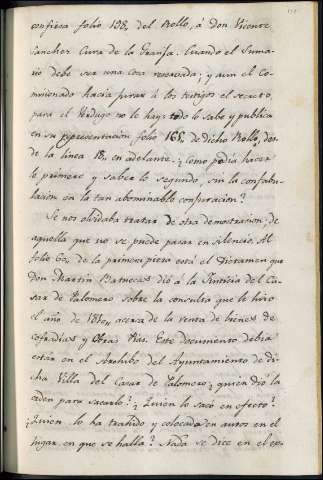 confiesa folio 198, del Rollo, á Don Vicente
Sanchez Cura de la Granja. Cuando el Suma-
rio debe ser una cosa reservada; y aun el Co-
misionado hacia jurar á los testigos el secreto,
para el Verdugo no le hay: todo lo sabe y publica
en su representacion folio 165, de dicho Rollo, des-
de la linea 18,, en adelante. ¿Como podia hacer
lo primero y saber lo segundo, sin la confabu-
lacion ó la tan abominable conjuracion?
Se nos olvidaba tratar de otra demostracion, de
aquella que no se puede pasar en silencio. Al
folio 60,, de la primera pieza está el Dictamen que
Don Martin Batuecas dió á la Justicia del Ca-
sar de Palomero sobre la consulta que le hizo
el año de 1810,, acerca de la venta de bienes de
cofradias y Obras Pias. Este documento debia
estar en el Archibo del Ayuntamiento de di-
cha Villa del Casar de Palomero; ¿quien dió la
orden para sacarlo? ¿Quien lo sacó en efecto?
¿Quien lo ha trahido y colocado en autos en el
lugar en que se halla? Nada se dice en el ex-